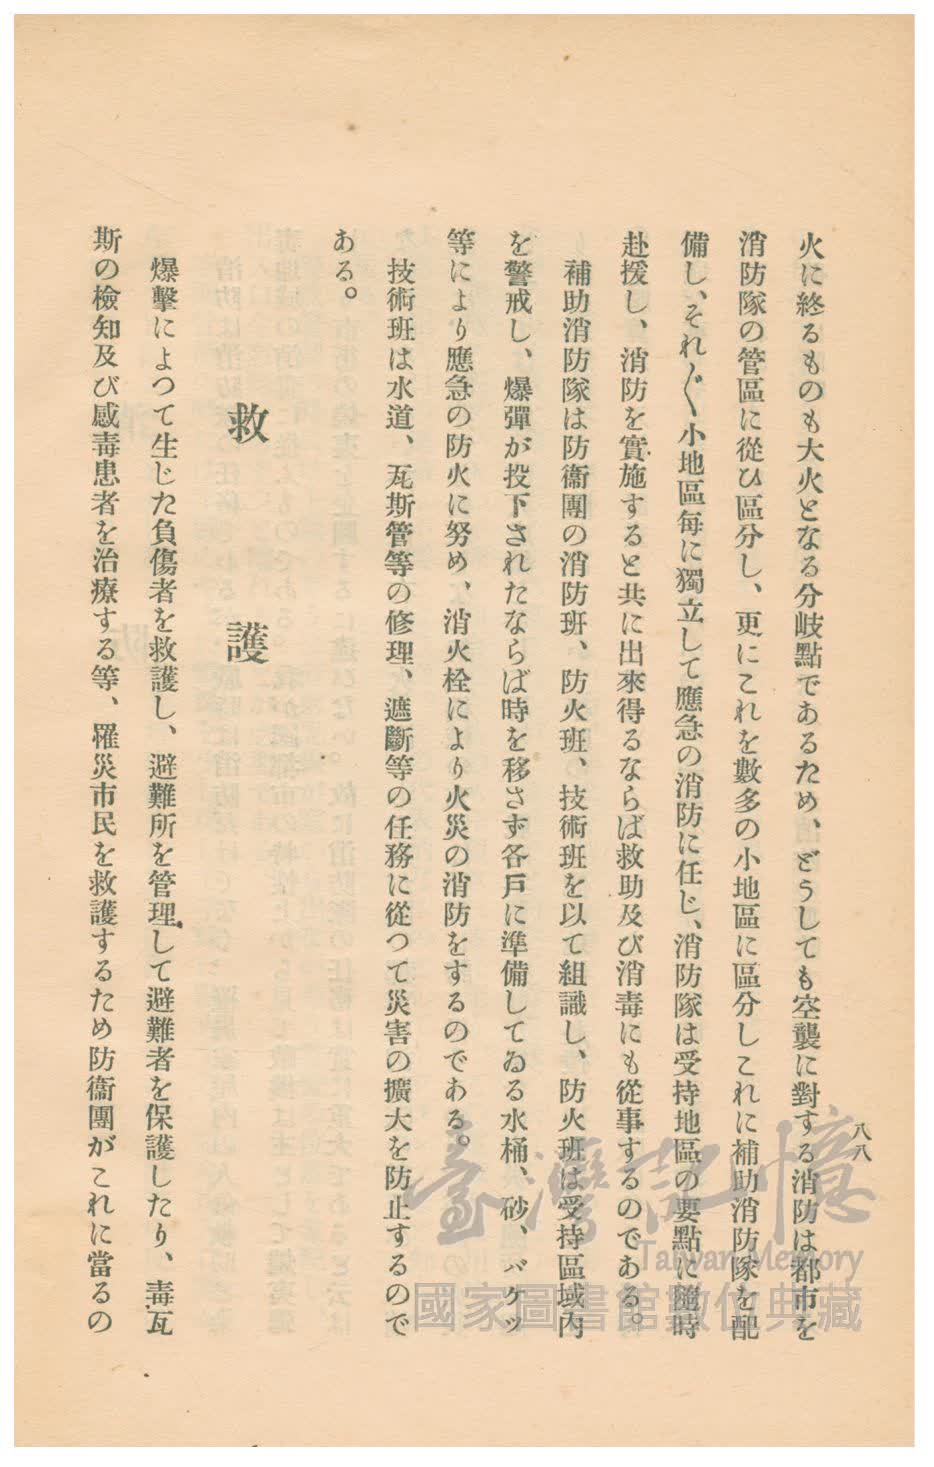 八八
火に終るものも大火となる分岐點であるため、どうしても空襲に對する消防は都市を
消防隊の管區に從ひ區分し、更にこれを數多の小地區に區分しこれに補助消防隊を配
備し、それ〴〵小地區每に獨立して應急の消防に任じ、消防隊は受持地區の要點に隨時
赴援し、消防を實施すると共に出來得るならば救助及び消毒にも從事するのである。
補助消防隊は防衞團の消防班、防火班、技術班を以て組識し、防火班は受持區域內
を警戒し、爆彈が投下されたならば時を移さず各戶に準備してゐる水桶、砂、バケッ
等により應急の防火に努め、消火栓により火災の消防をするのである。
技術班は水道、瓦斯管等の修理、遮斷等の任務に從つて災害の擴大を防止するので
ある。
救護
爆擊によつて生じた負傷者を救護し、避難所を管理して避難者を保護したり、毒瓦
斯の檢知及び感毒患者を治療する等、罹災市民を救護するため防衞團がこれに當るの
臺灣記憶
Taiwan Memory
國家圖書館數位典藏